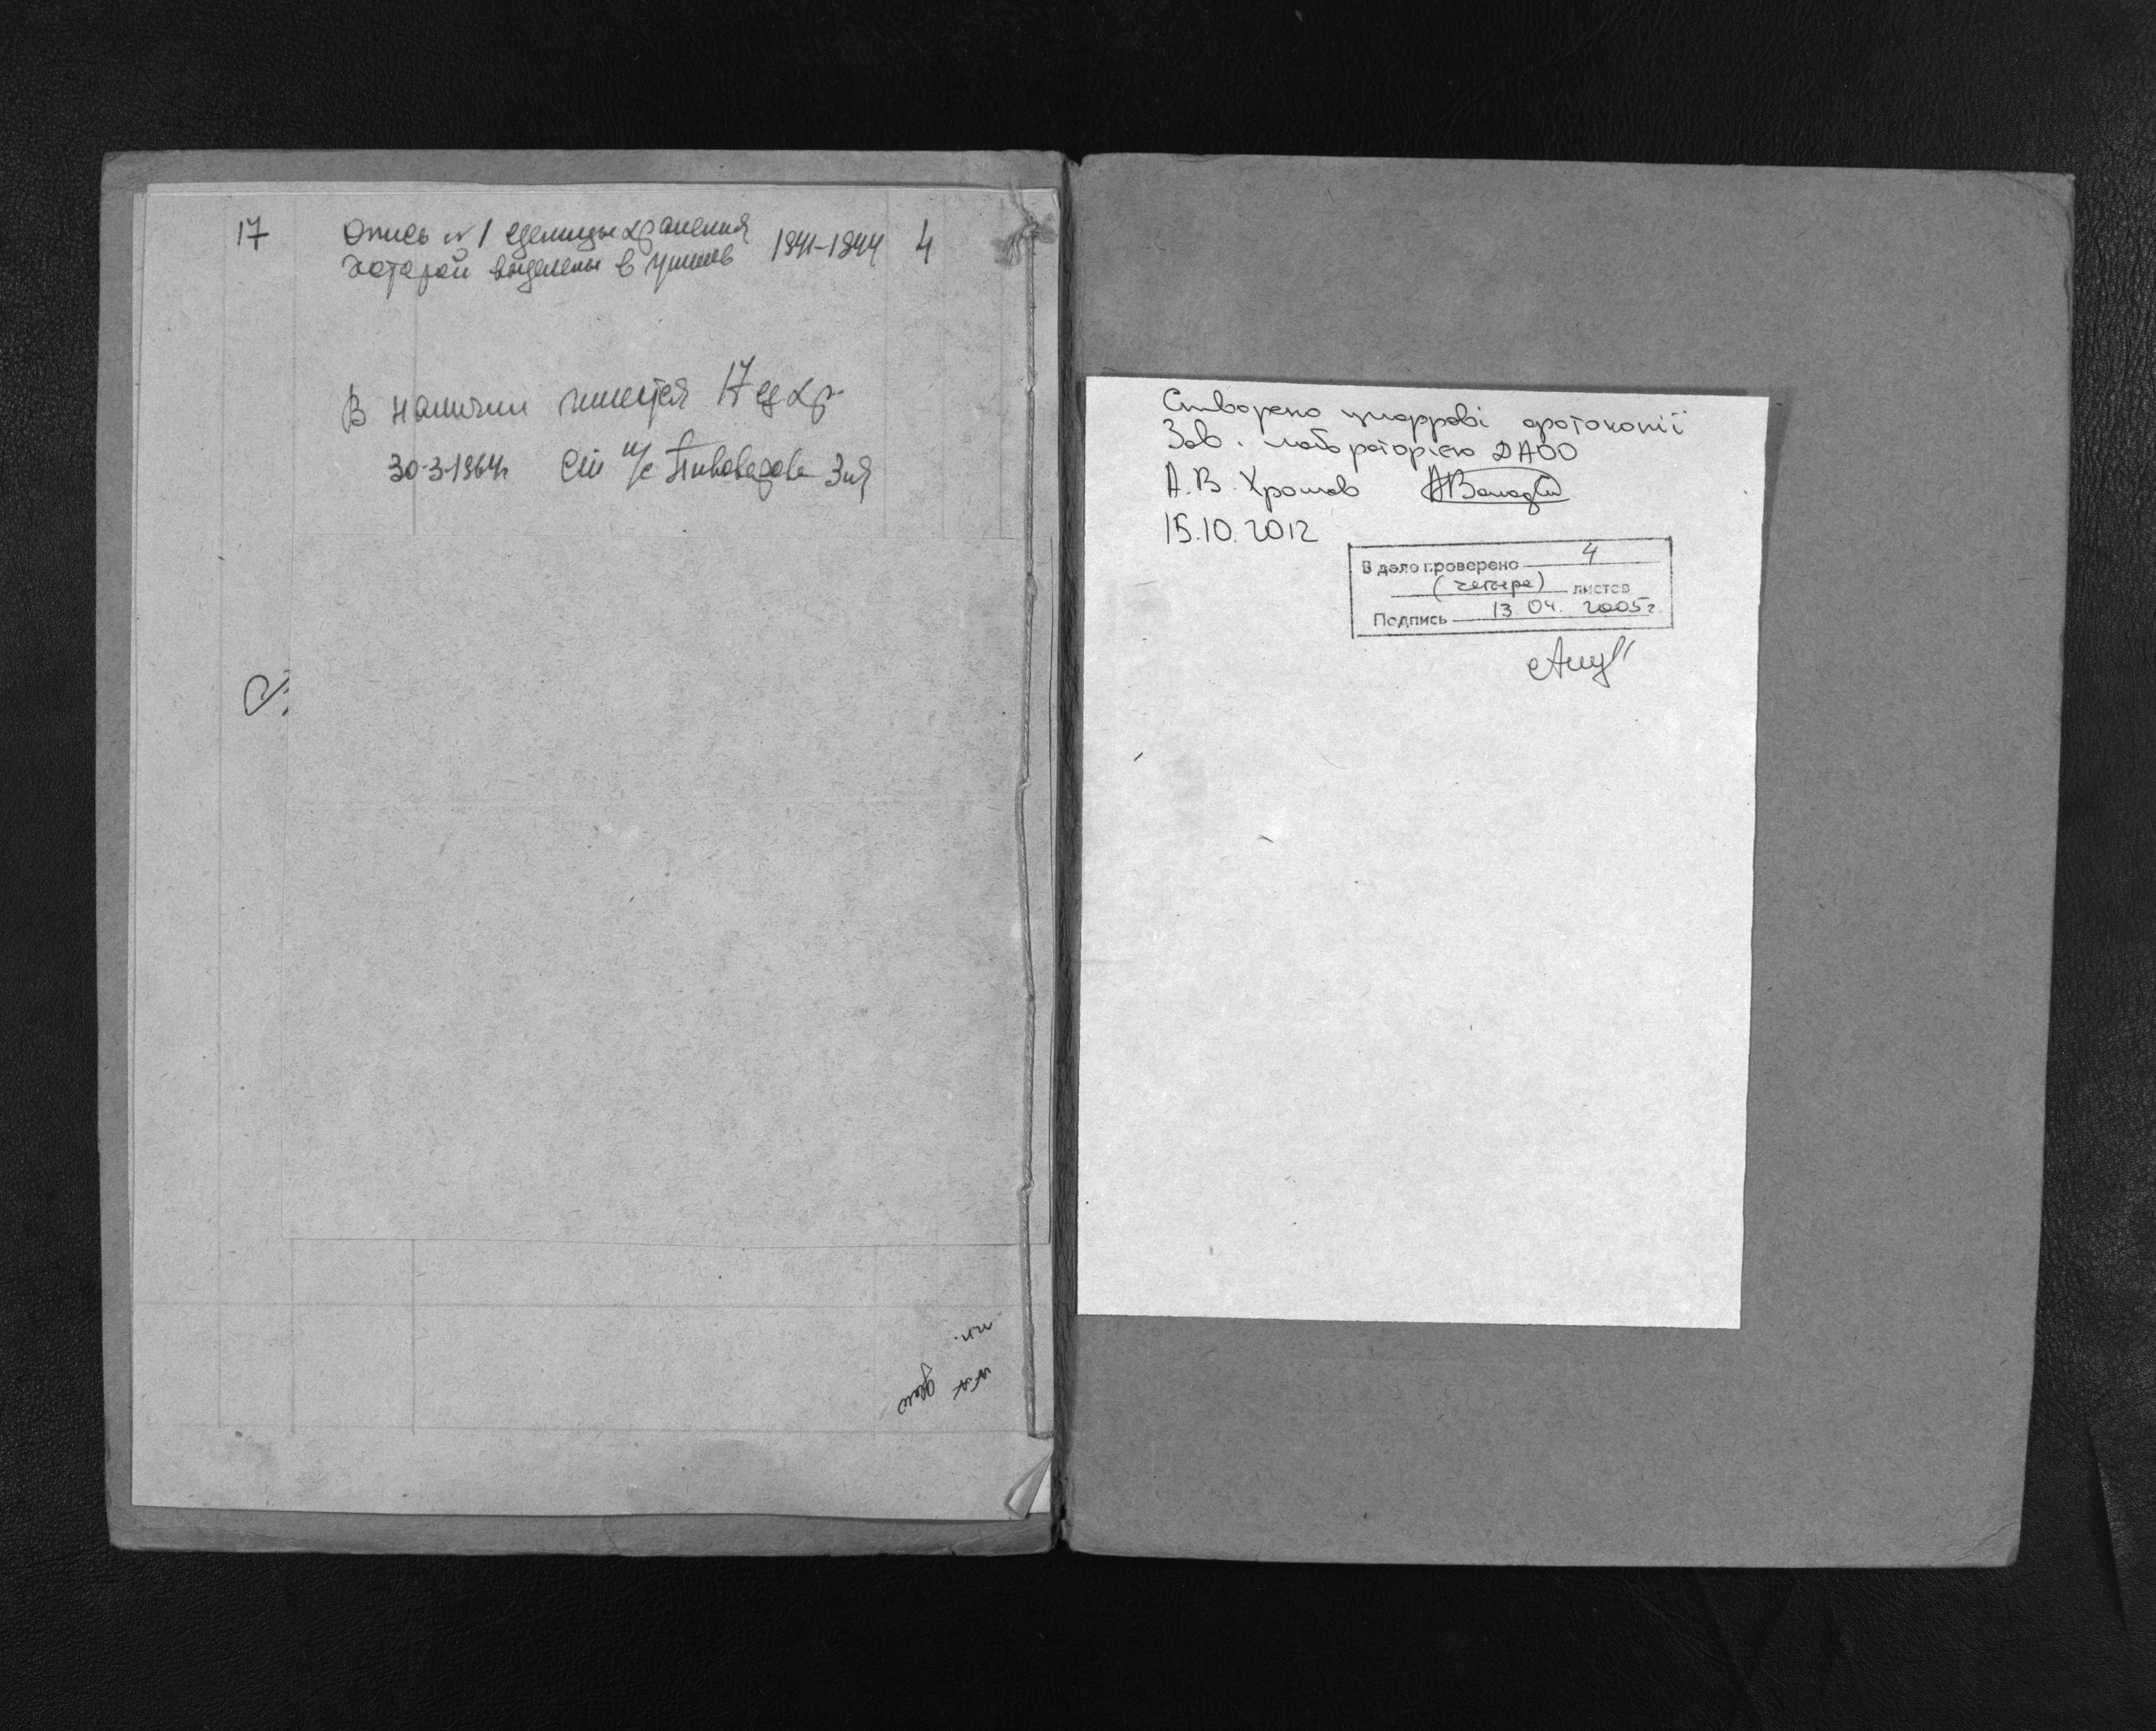 17 Опись № 1 единицы хранения 1941-1944 4
которой выделены в
В наличии имеется 17 ед хр
30-3-1964г Ст н/с Пивоварова
Створено цифрові фотокопії
Зав. лабораторією ДАОО
А.В. Хромов
15.10.2012
В дело проверено 4
(четыре) листов
Подпись 13.04. 2005г.